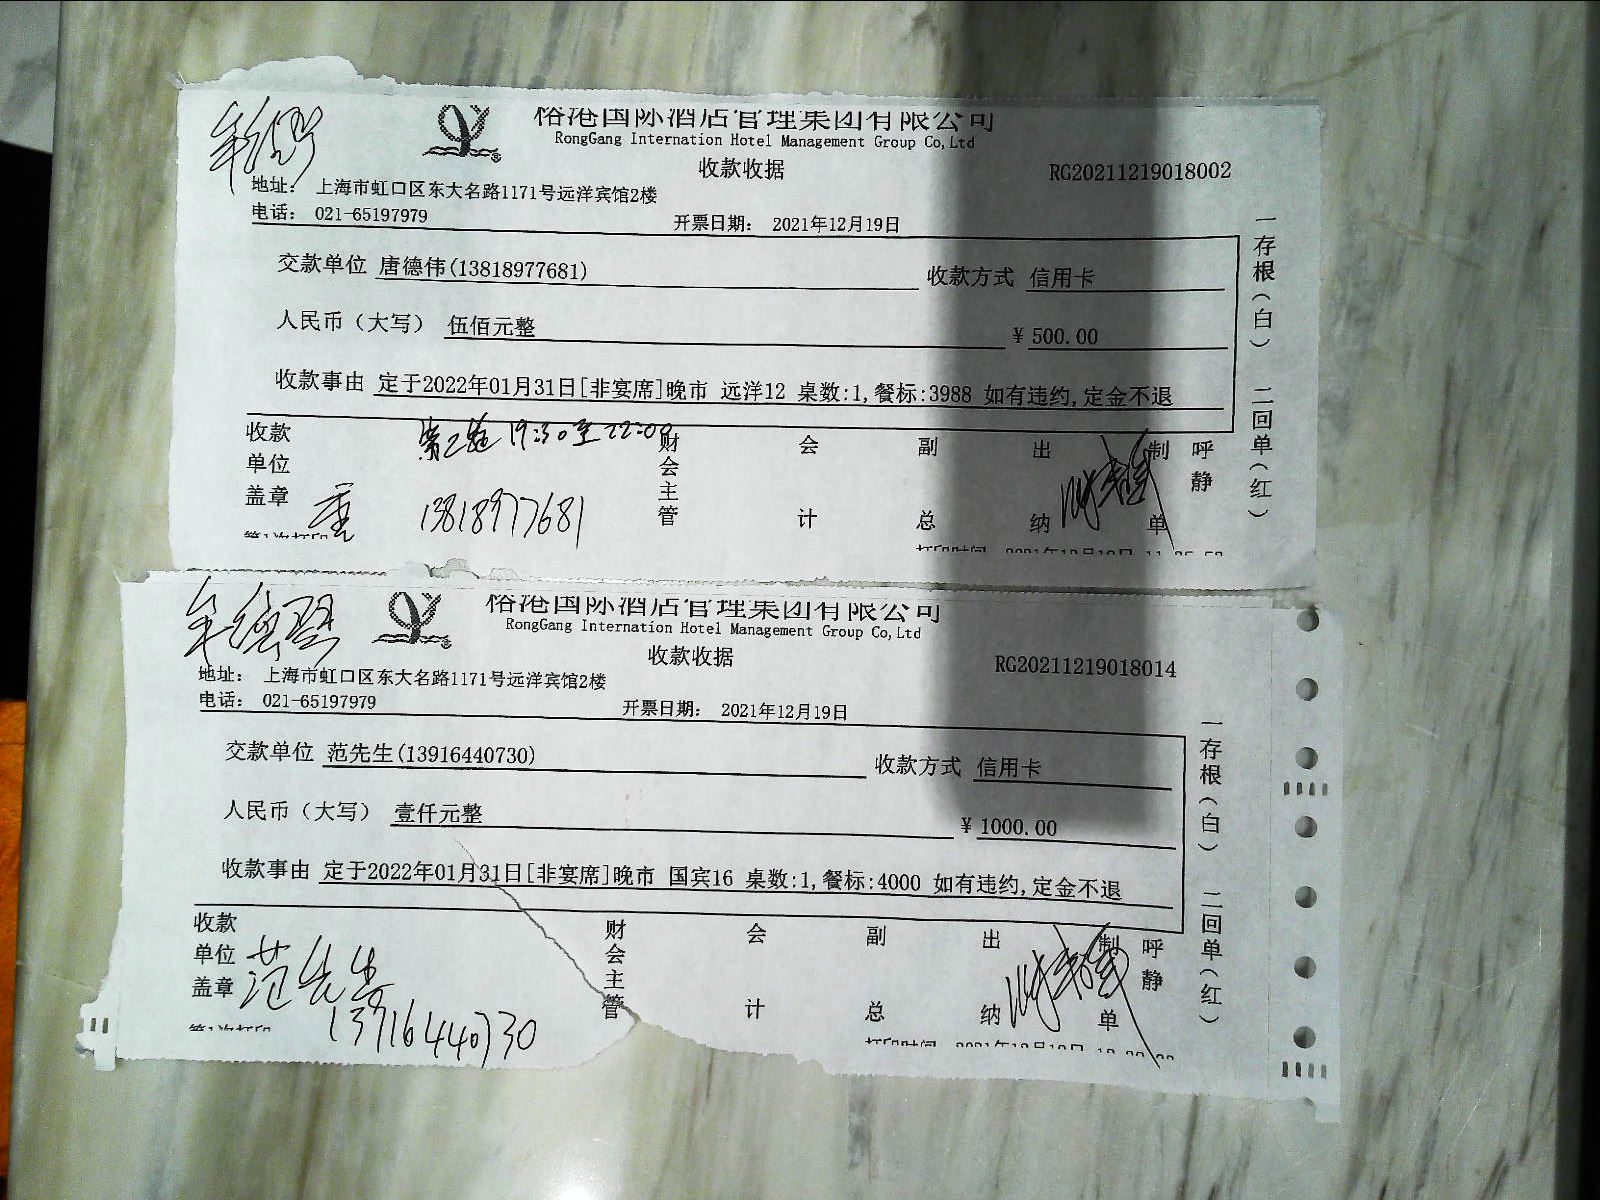 榕港国际酒店管理集团有限公司
RongGang Internation Hotel Management Group Co,Ltd
收款收据 RG20211219018002
地址： 上海市虹口区东大名路1171号远洋宾馆2楼
电话： 021-65197979 开票日期： 2021年12月19日
交款单位 唐德伟(13818977681) 收款方式 信用卡
人民币（大写） 伍佰元整 ¥ 500.00
收款事由 定于2022年01月31日[非宴席]晚市 远洋12 桌数:1,餐标:3988 如有违约,定金不退
一存根（白） 二回单（红）
第二轮 19:30至22:00
收款单位盖章 财会主管 会计 副总 出纳 制单 呼静
13818977681
第1次打印
打印时间
榕港国际酒店管理集团有限公司
RongGang Internation Hotel Management Group Co,Ltd
收款收据 RG20211219018014
地址： 上海市虹口区东大名路1171号远洋宾馆2楼
电话： 021-65197979 开票日期： 2021年12月19日
交款单位 范先生(13916440730) 收款方式 信用卡
人民币（大写） 壹仟元整 ¥ 1000.00
收款事由 定于2022年01月31日[非宴席]晚市 国宾16 桌数:1,餐标:4000 如有违约,定金不退
一存根（白） 二回单（红）
收款单位盖章 财会主管 会计 副总 出纳 制单 呼静
范先生
13916440730
第1次打印
打印时间